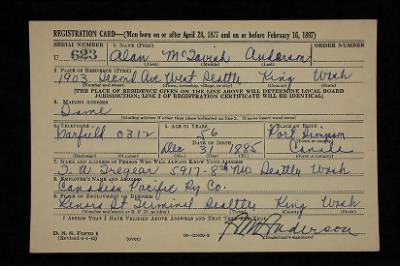 REGISTRATION CARD—(Men born on or after April 28, 1877 and on or before February 16, 1897)
SERIAL NUMBER 1. NAME (Print) ORDER NUMBER
U 623 Alan McTavish Anderson
2. PLACE OF RESIDENCE (Print)
1903 Second Ave West Seattle King Wash
(Number and street) (Town, township, village, or city) (County) (State)
[THE PLACE OF RESIDENCE GIVEN ON THE LINE ABOVE WILL DETERMINE LOCAL BOARD
JURISDICTION; LINE 2 OF REGISTRATION CERTIFICATE WILL BE IDENTICAL]
3. MAILING ADDRESS
Same
[Mailing address if other than place indicated on line 2. If same insert word same]
4. TELEPHONE 5. AGE IN YEARS 6. PLACE OF BIRTH
Garfield 0312 56 Port Simpson
DATE OF BIRTH
Dec 31 1885 Canada
(Exchange) (Number) (Mo.) (Day) (Yr.) (State or country)
7. NAME AND ADDRESS OF PERSON WHO WILL ALWAYS KNOW YOUR ADDRESS
T. A. Tregear 5917-8th No. Seattle Wash
8. EMPLOYER'S NAME AND ADDRESS
Canadian Pacific Ry Co.
9. PLACE OF EMPLOYMENT OR BUSINESS
St Terminal Seattle King Wash
(Number and street or R. F. D. number) (Town) (County) (State)
I AFFIRM THAT I HAVE VERIFIED ABOVE ANSWERS AND THAT THEY ARE TRUE.
D. S. S. Form 1
(Revised 4-1-42) (over) Anderson